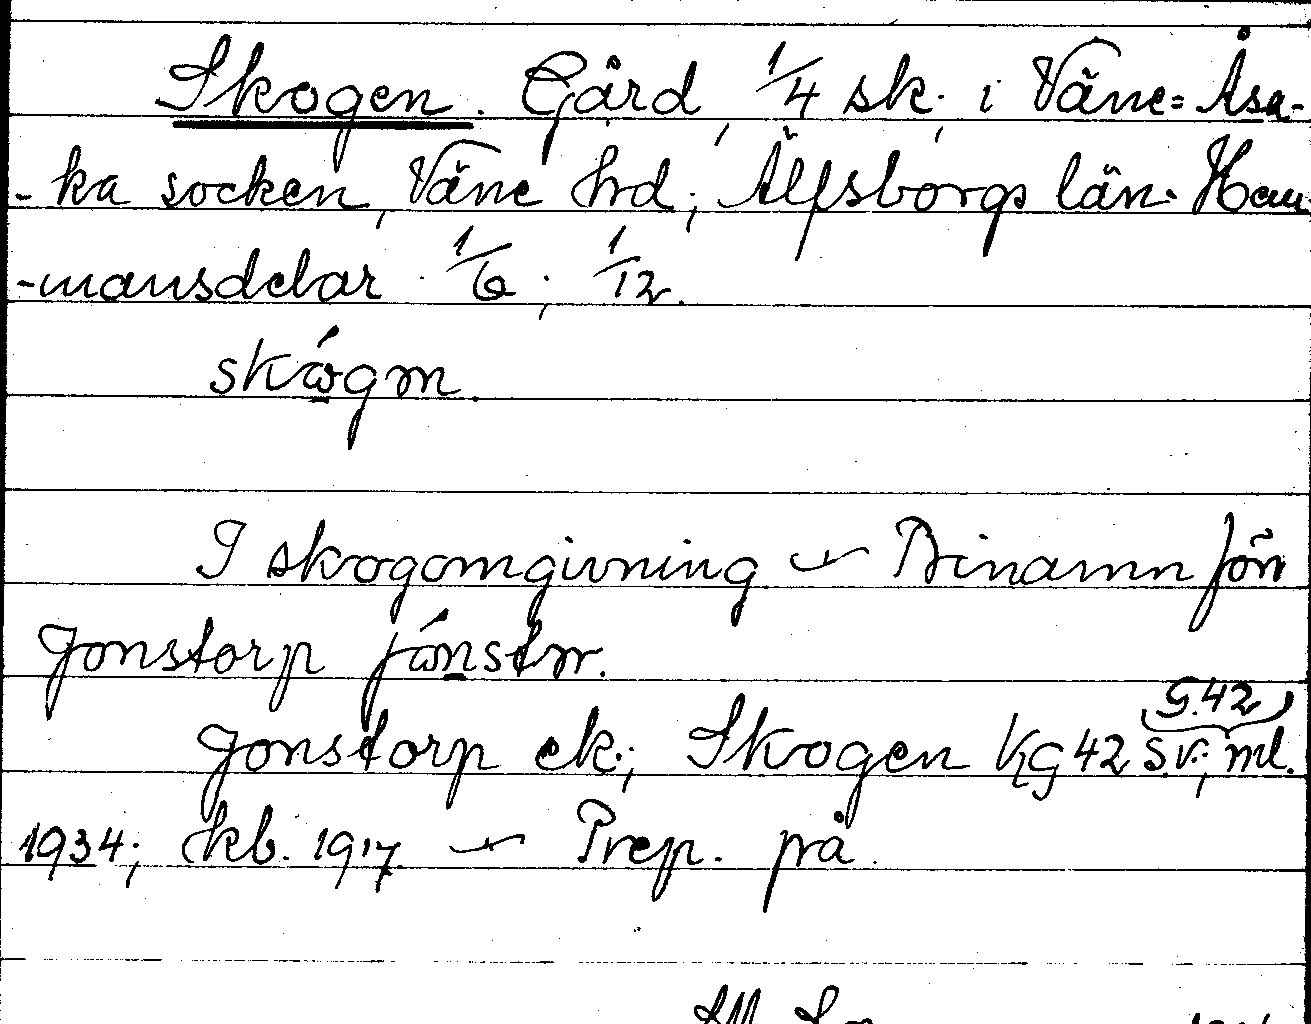 Skogen. Gård, 1/4 sk. i Väne-Åsa-
-ka socken, Väne hrd; Älfsborgs län. Hem-
-mansdelar 1/6; 1/12.
skógm.
I skogomgivning — Binamn för
Jonstorp
Jonstorp ek.; Skogen KG 42 s.v.; ml.
G.42
1934; kb. 1917 — Prep. på.